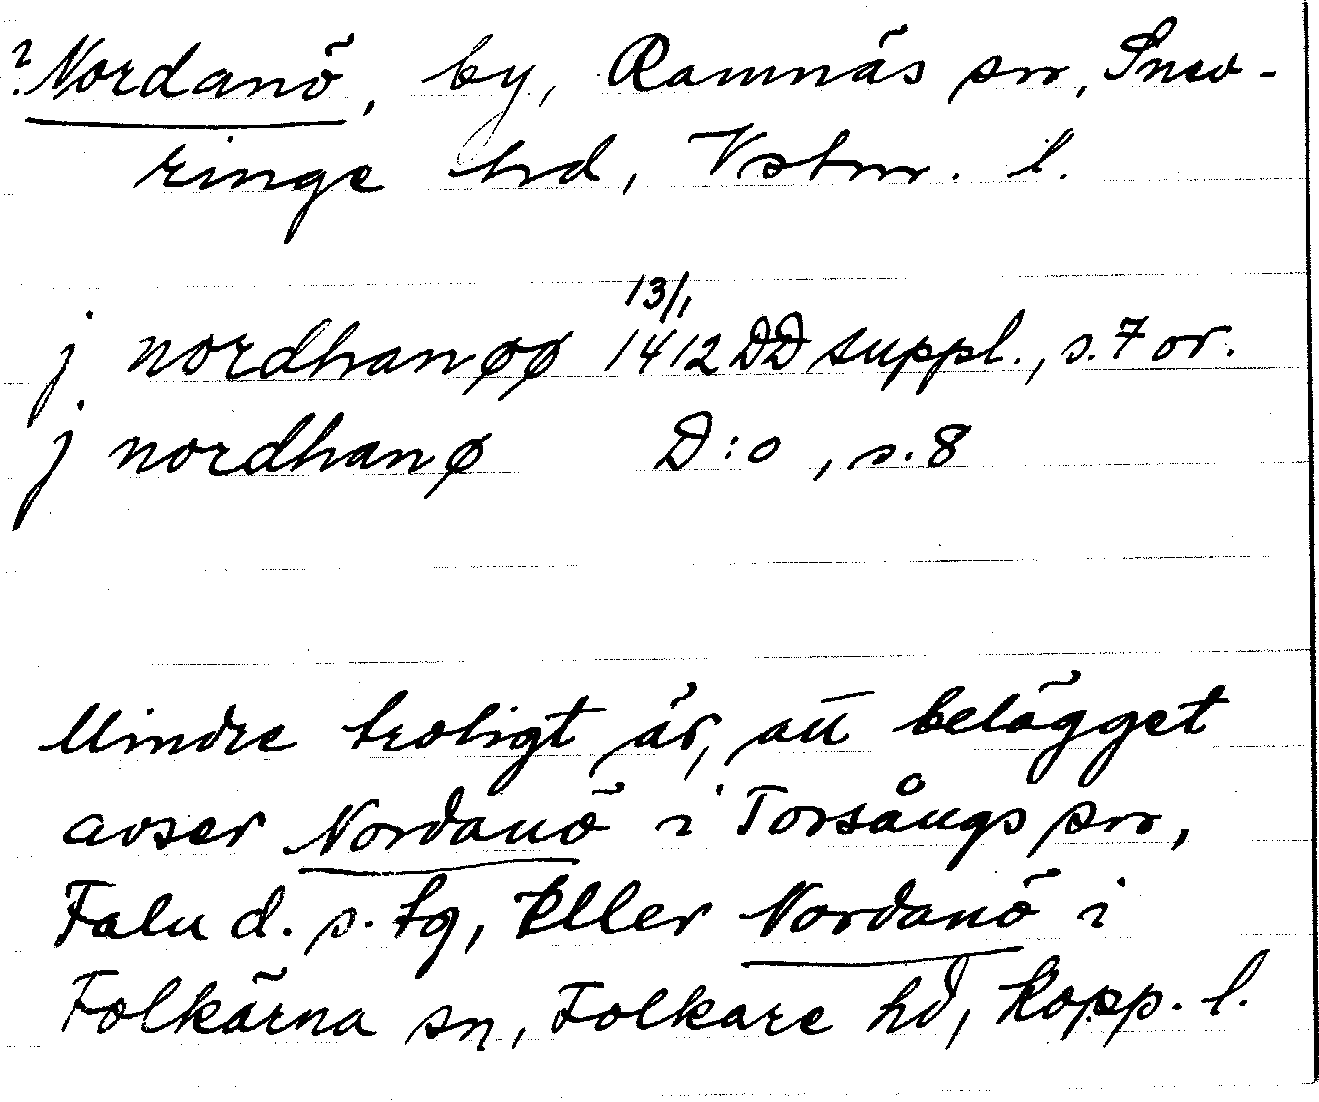 ? Nordanö, by, Ramnäs sn, Snev-
ringe hrd, Vstm. l.
13/1
j nordhanøø 1412 DD suppl., s. 7 or.
j nordhanø D:o, s. 8
Mindre troligt är, att belägget
avser Nordanö i Torsångs sn,
Falu d. s. tg, eller Nordanö i
Folkärna sn, Folkare hd, Kopp. l.